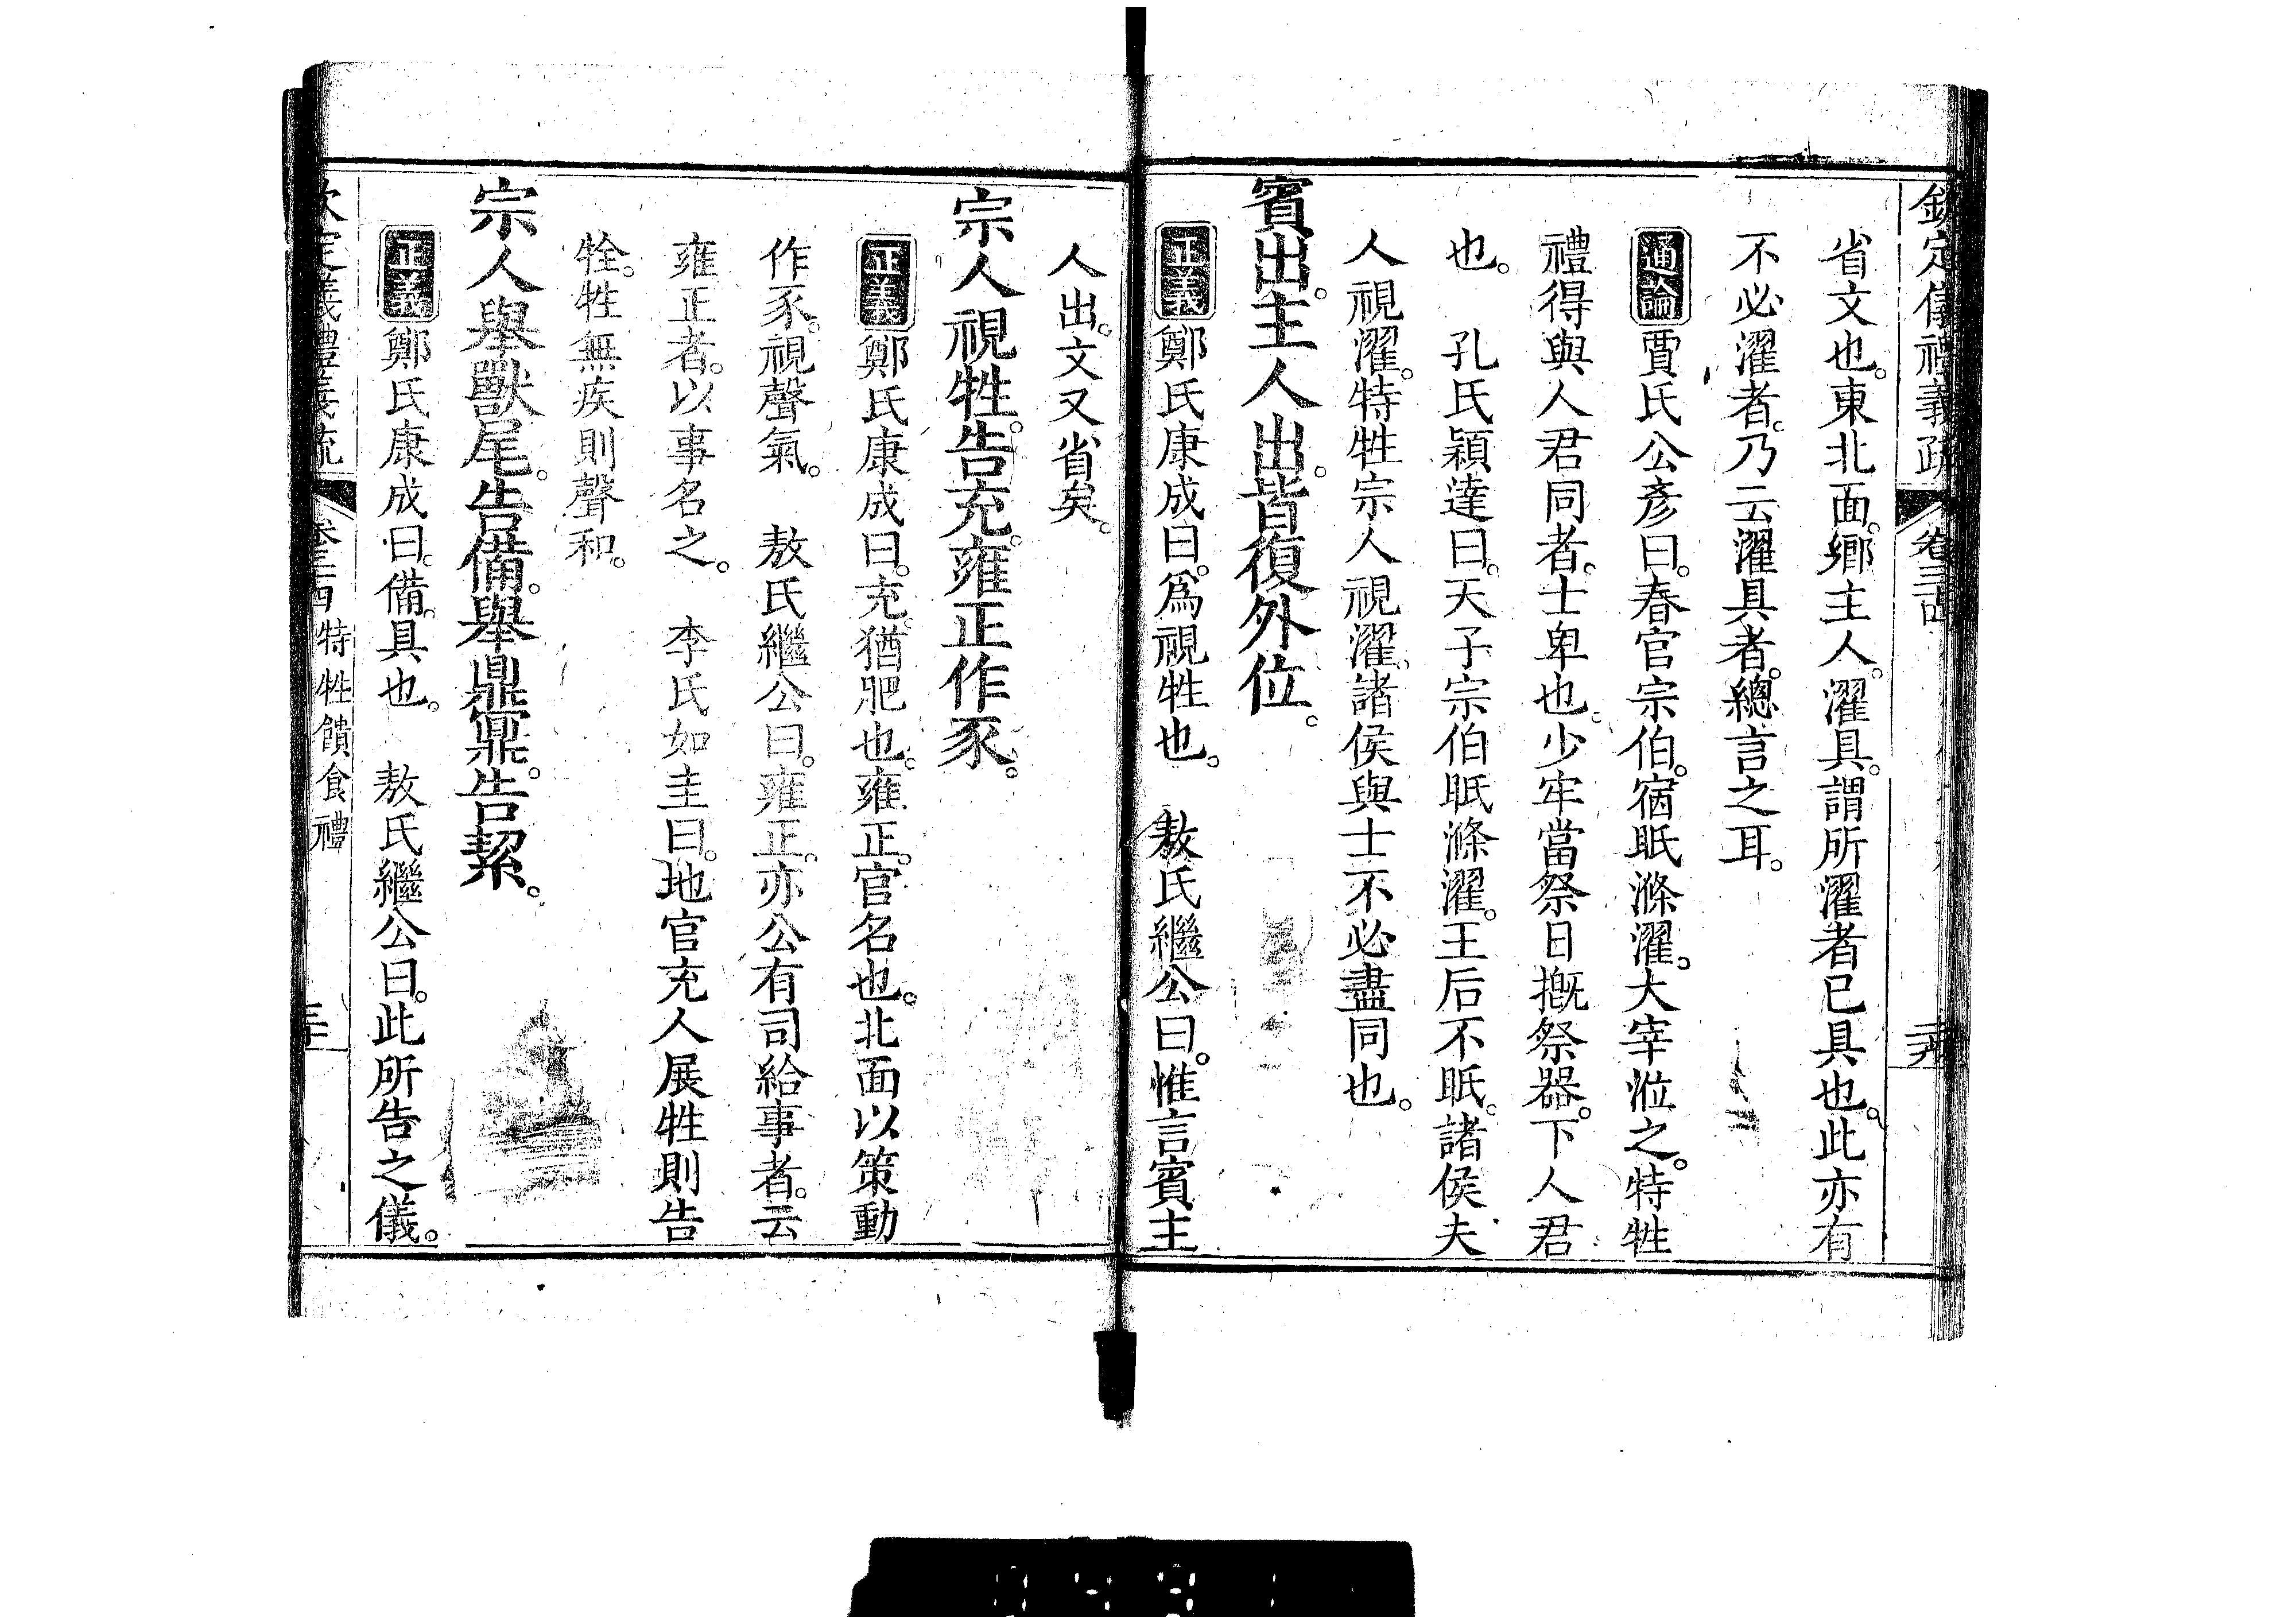 欽定儀禮義疏 卷三十四
省文也。東北面。鄉主人。濯具。謂所濯者已具也。此亦有
不必濯者。乃云濯具者。總言之耳。
通論 賈氏公彥曰。春官宗伯。宿眡滌濯。大宰涖之。特牲
禮得與人君同者。士卑也。少牢當祭日摡祭器。下人君
也。 孔氏穎達曰。天子宗伯眡滌濯。王后不眡。諸侯夫
人視濯。特牲宗人視濯。諸侯與士不必盡同也。
賓出。主人出。皆復外位。
正義 鄭氏康成曰。爲視牲也。 敖氏繼公曰。惟言賓主
人出。文又省矣。
宗人視牲。告充。雍正作豕。
正義 鄭氏康成曰。充。猶肥也。雍正。官名也。北面以策動
作豕。視聲氣。 敖氏繼公曰。雍正。亦公有司給事者。云
雍正者。以事名之。 李氏如圭曰。地官充人展牲則告
牷。牲無疾則聲和。
宗人舉獸尾。告備。舉鼎鼏。告絜。
正義 鄭氏康成曰。備。具也。 敖氏繼公曰。此所告之儀。
欽定儀禮義疏 卷三十四 特牲饋食禮